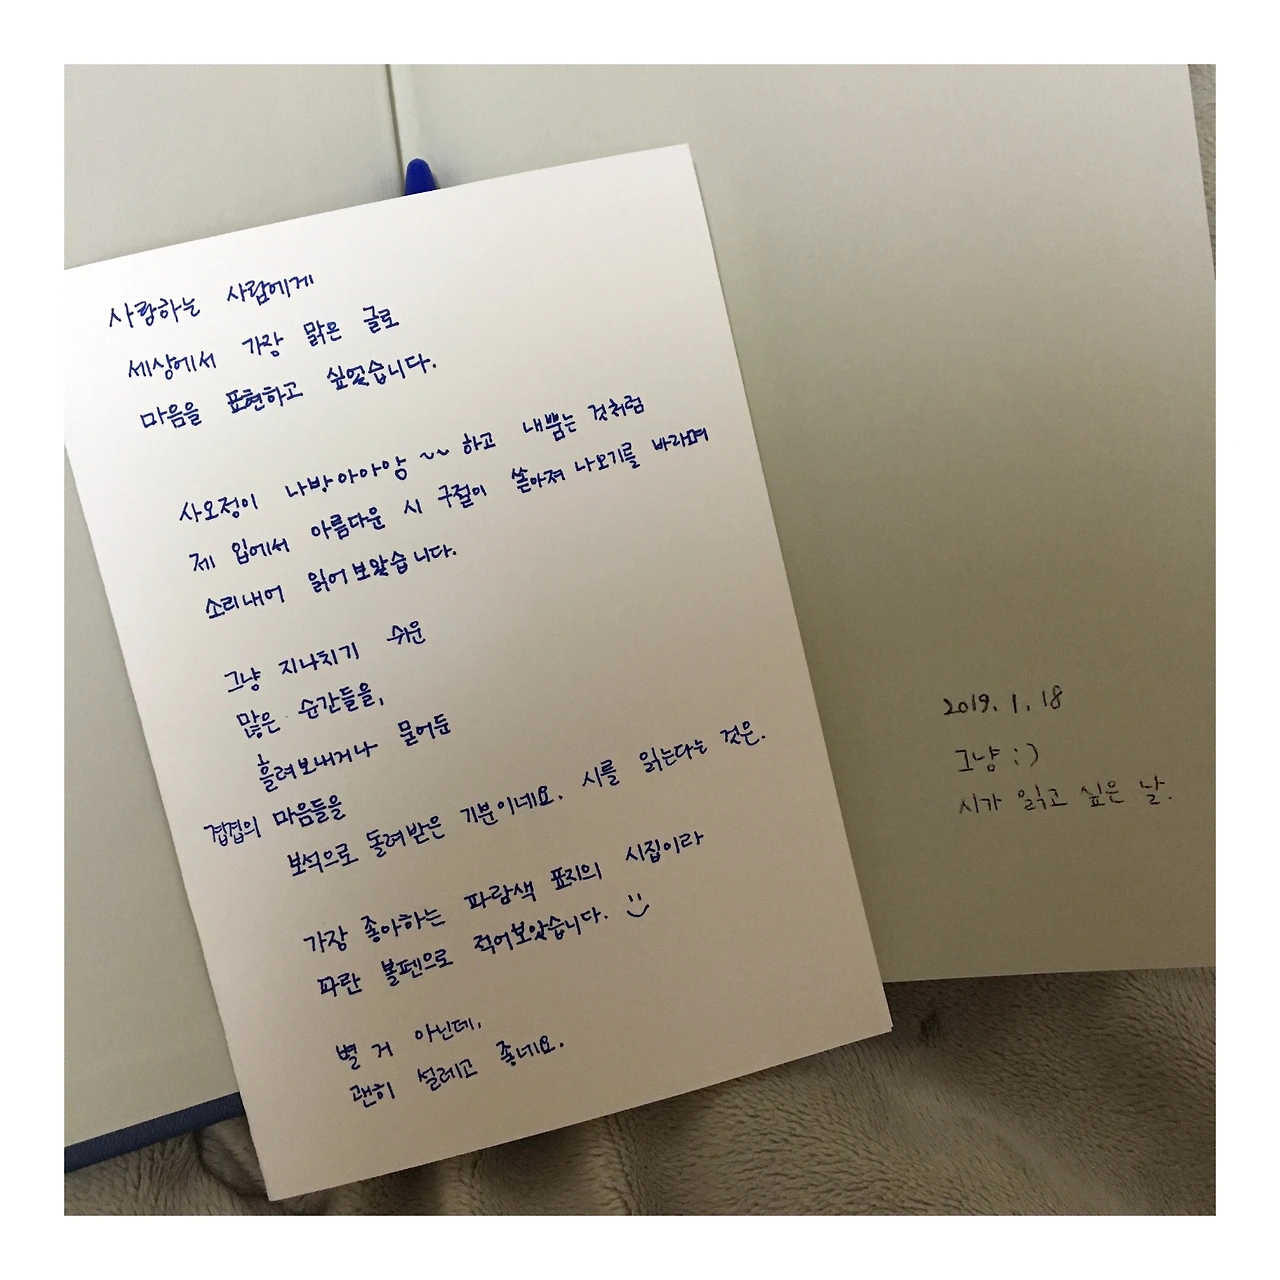 사랑하는 사람에게
세상에서 가장 맑은 글로
마음을 표현하고 싶었습니다.
사오정이 나방아아암~~ 하고 내뿜는 것처럼
제 입에서 아름다운 시 구절이 쏟아져 나오기를 바라며
소리내어 읽어보았습니다.
그냥 지나치기 쉬운
많은 순간들을,
흘려보내거나 묻어둔
겹겹의 마음들을
보석으로 돌려받은 기분이네요. 시를 읽는다는 것은.
가장 좋아하는 파랑색 표지의 시집이라
파란 볼펜으로 적어보았습니다. :)
별 거 아닌데,
괜히 설레고 좋네요.
2019. 1. 18
그냥 :)
시가 읽고 싶은 날.